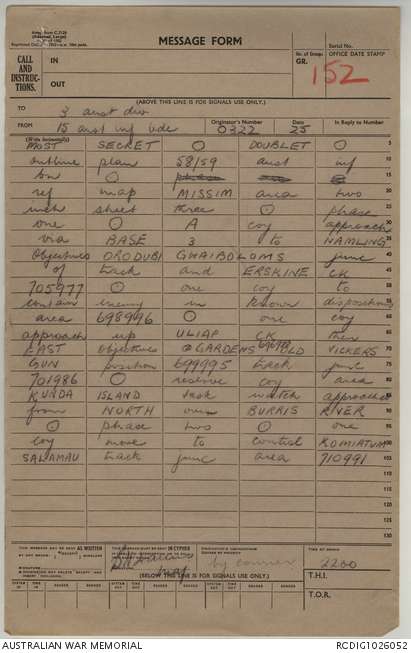 MESSAGE FORM
Serial No.
CALL AND INSTRUC-TIONS.
IN
OUT
No. of Groups
GR.
152
OFFICE DATE STAMP
(ABOVE THIS LINE IS FOR SIGNALS USE ONLY.)
TO
3 aust div
FROM
15 aust inf bde
Originator's Number
0322
Date
25
In Reply to Number
(Write horizontally)
MOST SECRET O DOUBLET O
outline plan 58/59 aust inf
bn O
ref map MISSIM area two
inch sheet three O phase
one O A coy approach
via BASE 3 to NAMLING
Objectives ORODUBI GWAIBOLOMS junc
of track and ERSKINE CK
705977 O one coy to
contain enemy in known dispositions
area 698996 O one coy
approach up ULIAP CK then
EAST objectives GARDENS 696998 OLD VICKERS
GUN position 699995 track junc
701986 O reserve coy area
KUNDA ISLAND task watch approaches
from NORTH over BURRIS RIVER
O phase two O one
coy move to control KOMIATUM
SALAMAU track junc area 710991
THIS MESSAGE MAY BE SENT AS WRITTEN
THIS MESSAGE MUST BE SENT IN CYPHER
by courier
2200
(BELOW THIS LINE IS FOR SIGNALS USE ONLY.)
T.H.I.
T.O.R.
AUSTRALIAN WAR MEMORIAL
RCDIG1026052